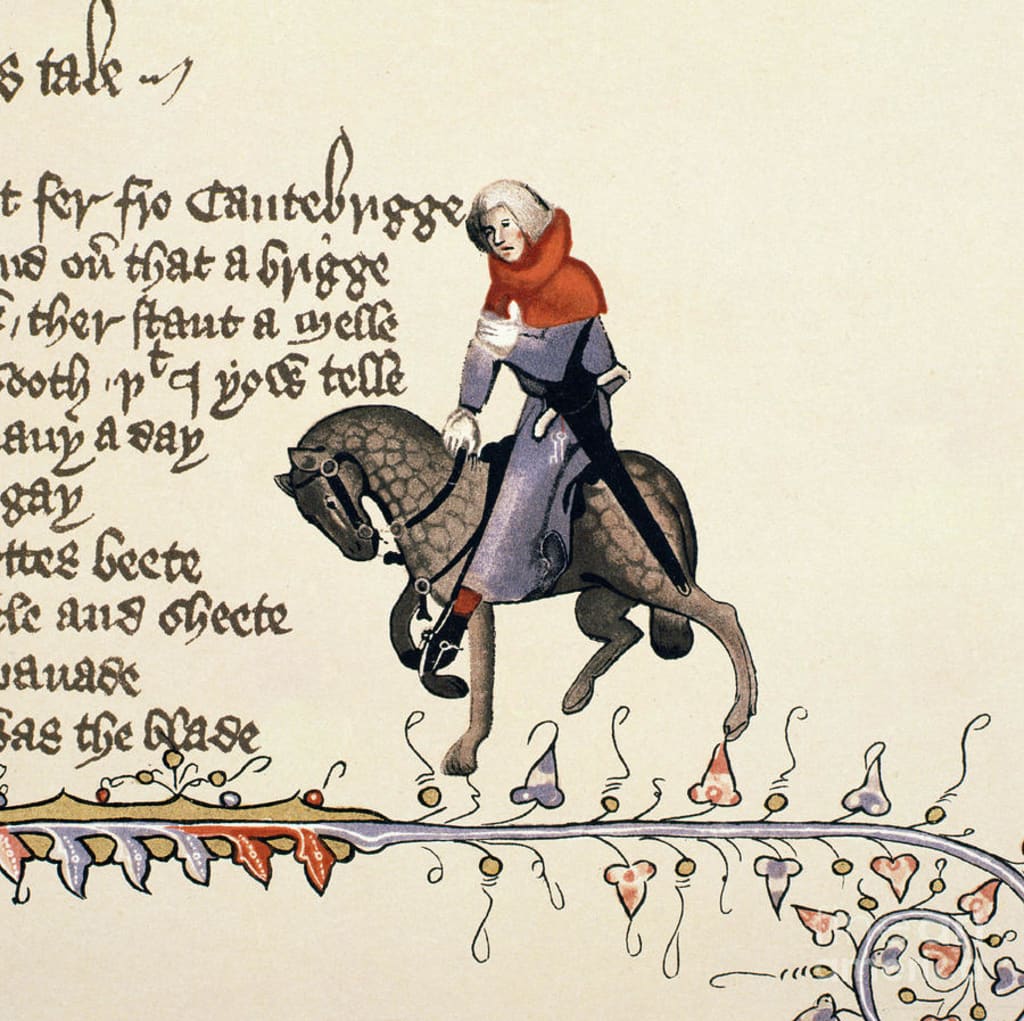 s tale
t fer fro Cantebrigge
nd oū that a brigge
, ther stant a Melle
sooth þᵗ I yow telle
any a day
gay
ttes beete
tle and sheete
pauade
was the blade